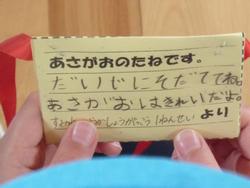 あさがおのたねです。
だいじにそだててね。
あさがおはきれいだよ。
しょうがっこう 1ねんせい より